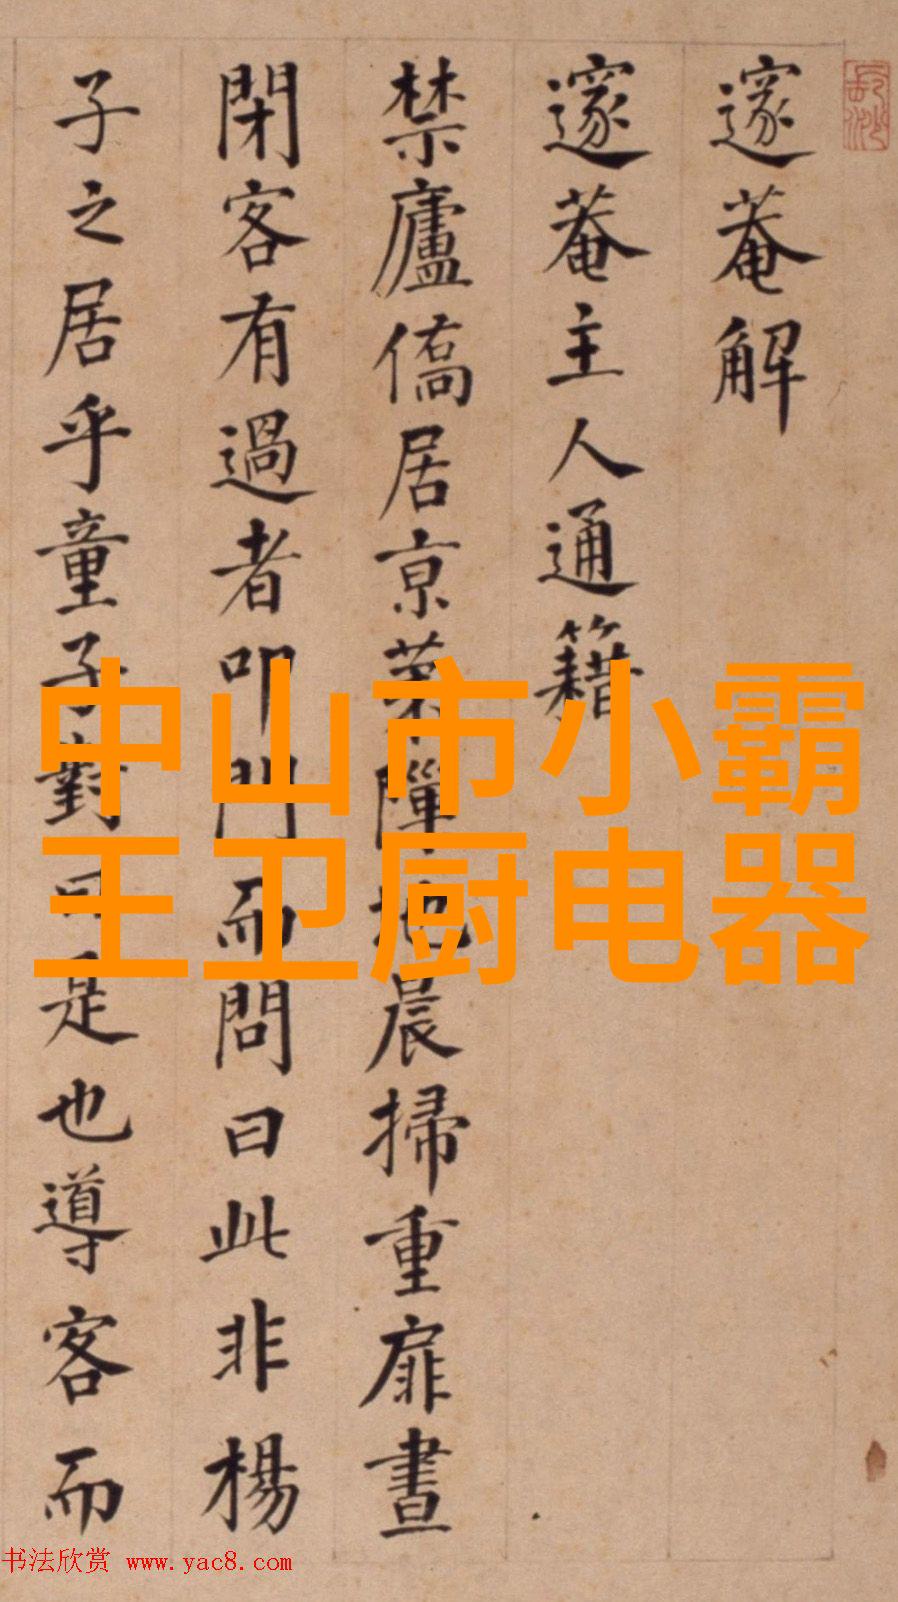 邃菴解
邃菴主人通籍
禁廬僑居京地晨掃重扉晝
閉客有過者叩門而問曰此非楊
子之居乎童子對曰是也導客而
中山市小霸
王卫厨电器
书法欣赏 www.yac8.com